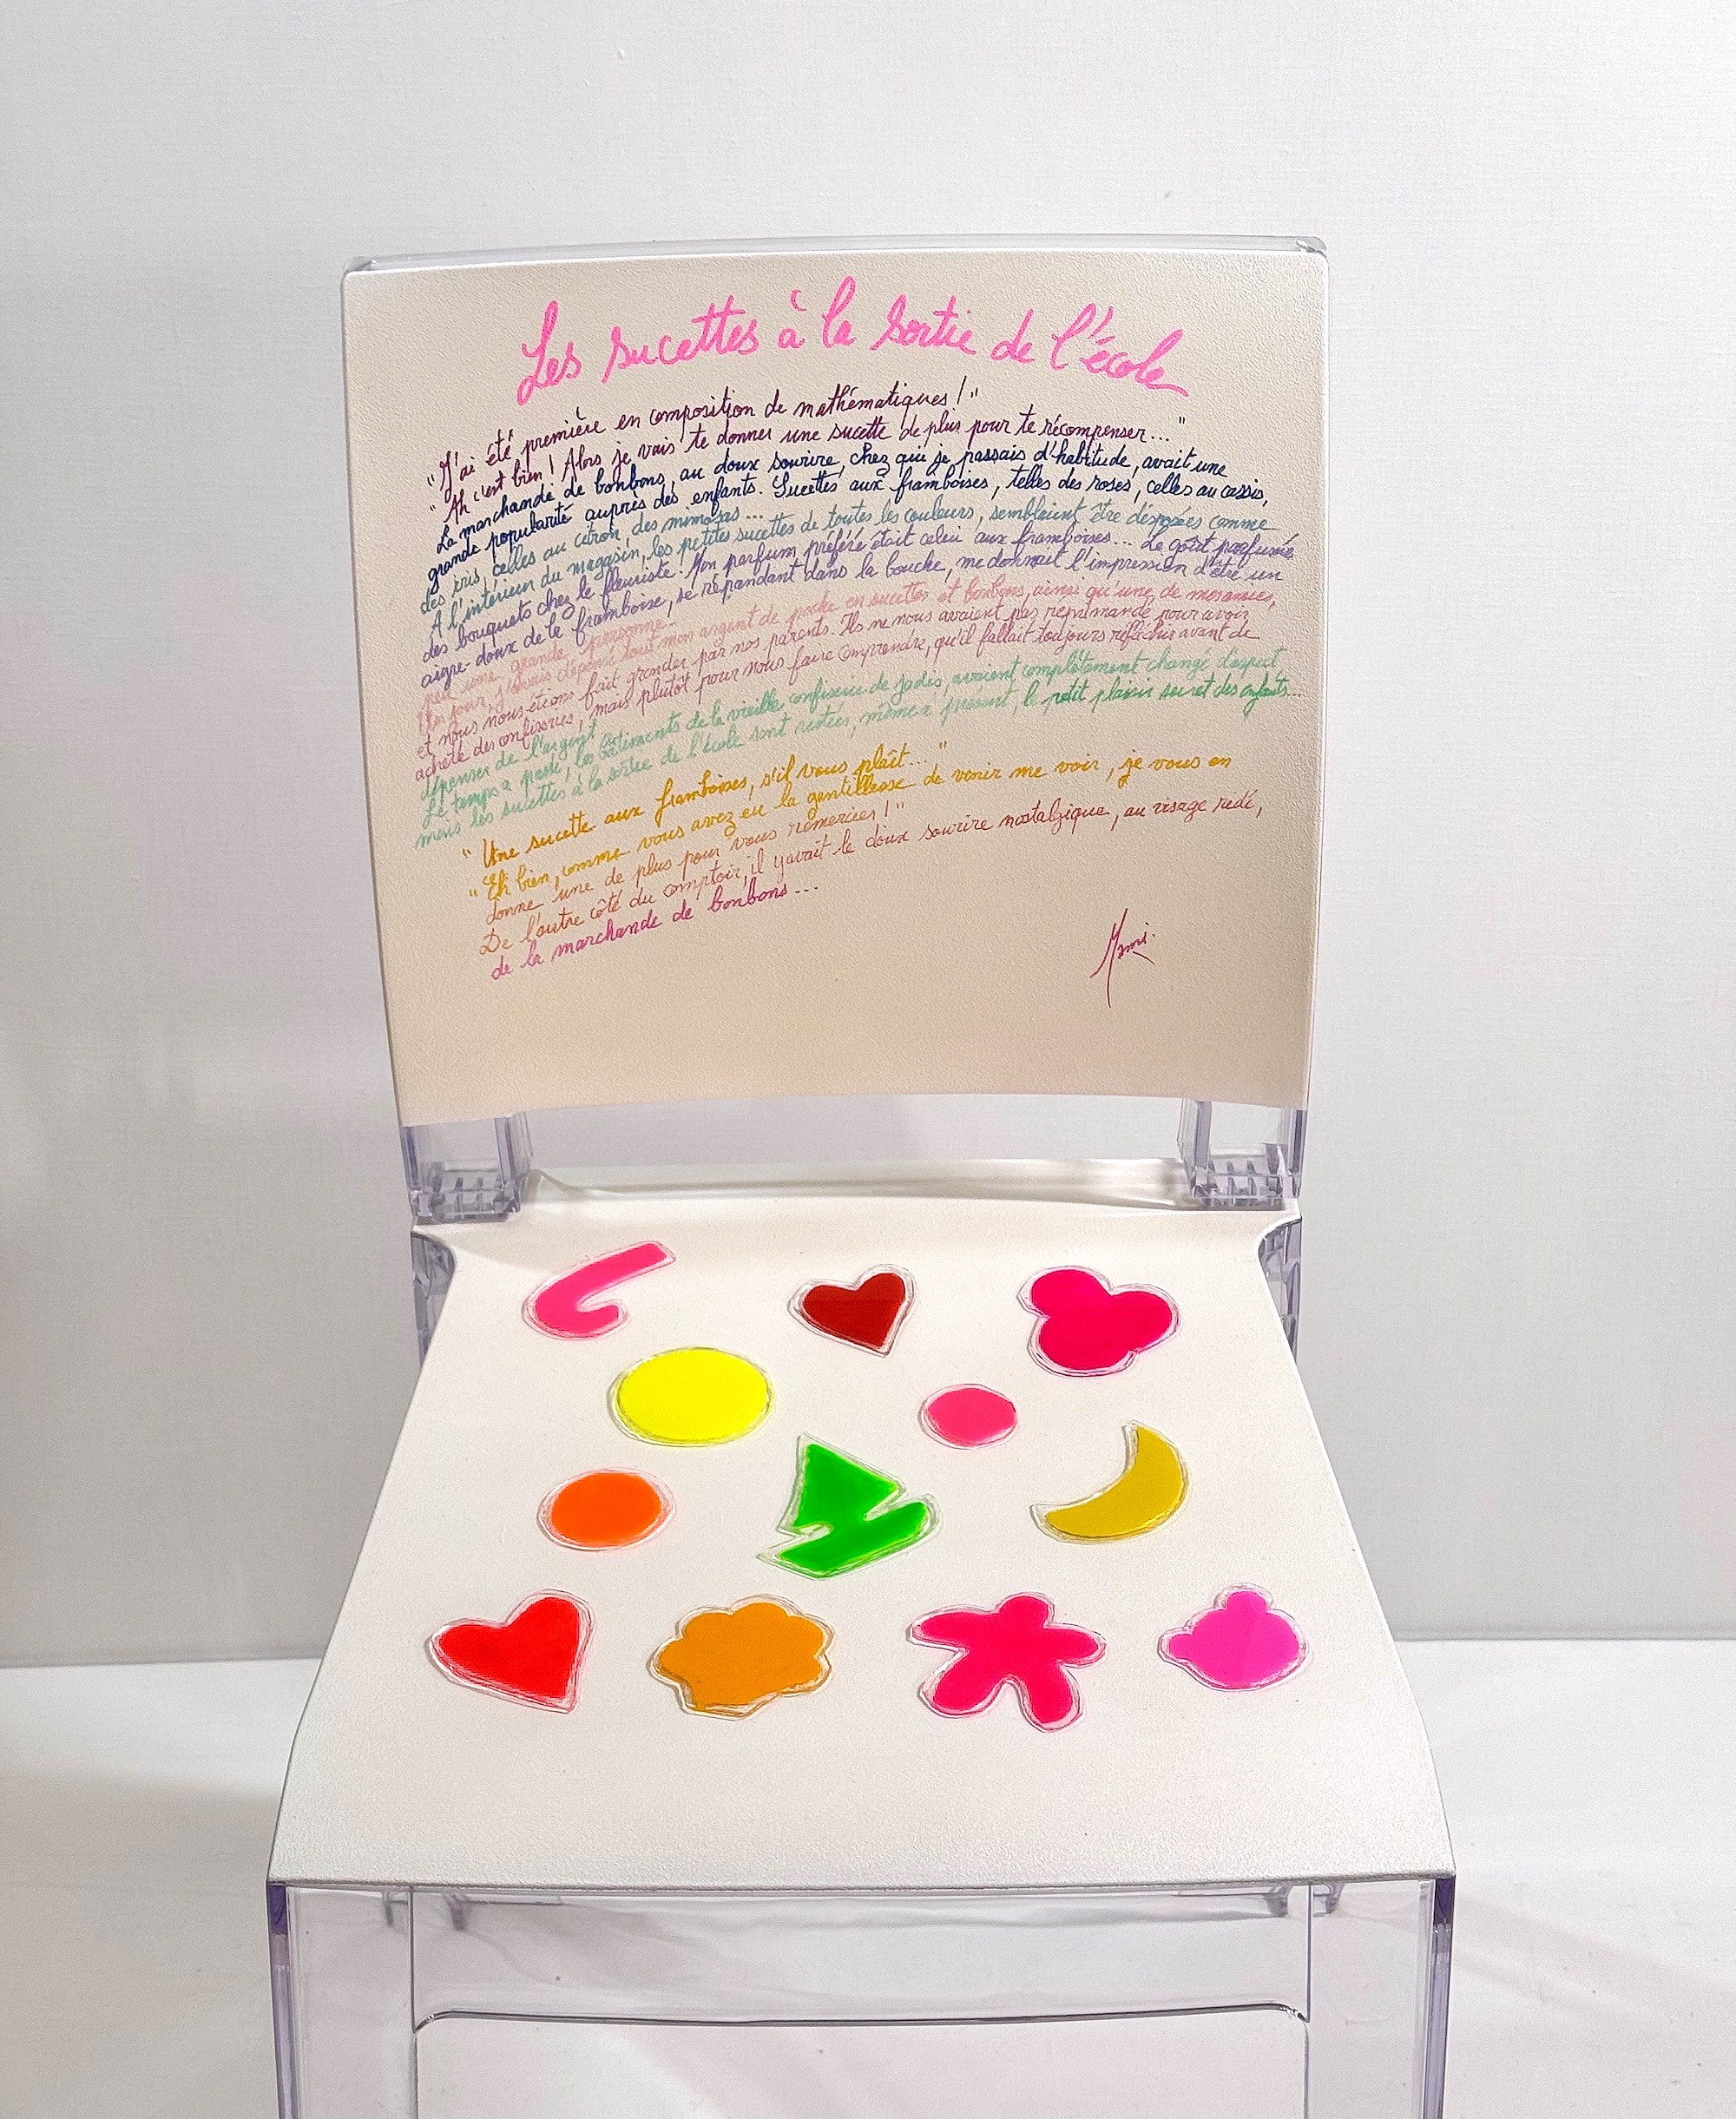 Les sucettes à la sortie de l'école
"J'ai été première en composition de mathématiques !"
"Ah c'est bien ! Alors je vais te donner une sucette de plus pour te récompenser..."
La marchande de bonbons, au doux sourire, chez qui je passais d'habitude, avait une
grande popularité auprès des enfants. Sucettes aux framboises, telles des roses, celles au cassis,
des iris, celles au citron, des mimosas...
A l'intérieur du magasin, les petites sucettes de toutes les couleurs, semblaient être disposées comme
des bouquets chez le fleuriste. Mon parfum préféré était celui aux framboises... Le goût parfumé
aigre-doux de la framboise, se répandant dans la bouche, me donnait l'impression d'être un
peu une grande personne.
Un jour, j'avais dépensé tout mon argent de poche en sucettes et bonbons, ainsi qu'une de mes amies,
et nous nous étions fait gronder par nos parents. Ils ne nous avaient pas réprimandé pour avoir
acheté des confiseries, mais plutôt pour nous faire comprendre, qu'il fallait toujours réfléchir avant de
dépenser de l'argent.
Le temps a passé, les bâtiments de la vieille confiserie de jadis, avaient complètement changé d'aspect,
mais les sucettes à la sortie de l'école sont restées, même à présent, le petit plaisir secret des enfants...
"Une sucette aux framboises, s'il vous plaît..."
"Eh bien, comme vous avez eu la gentillesse de venir me voir, je vous en
donne une de plus pour vous remercier !"
De l'autre côté du comptoir, il y avait le doux sourire nostalgique, au visage ridé,
de la marchande de bonbons...